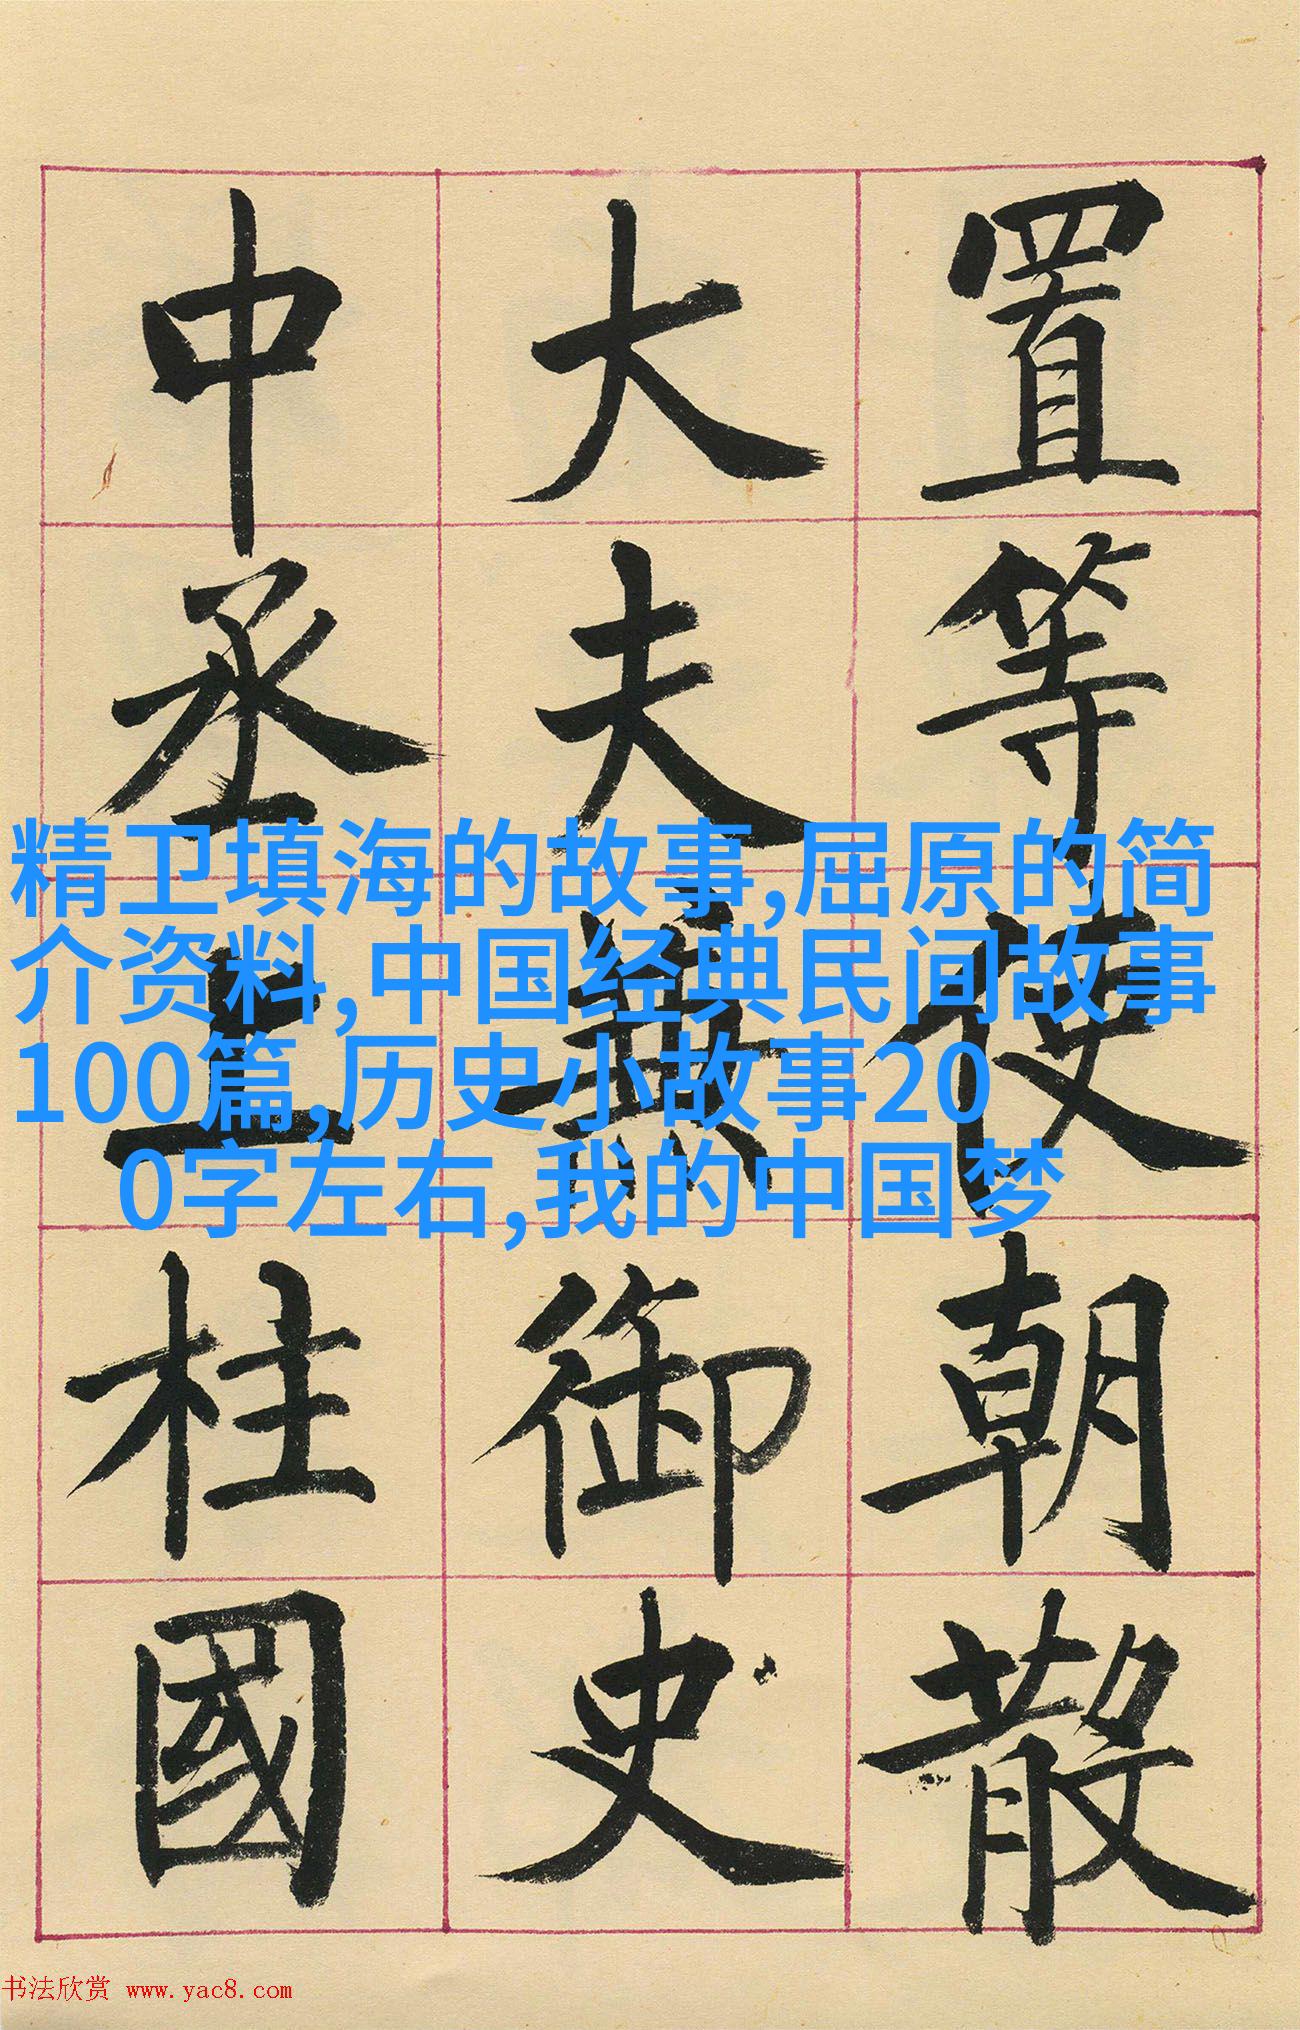 置等使朝散
大夫兼御史
中丞上柱國
精卫填海的故事,屈原的简
介资料,中国经典民间故事
100篇,历史小故事20
0字左右,我的中国梦
书法欣赏 www.yac8.com